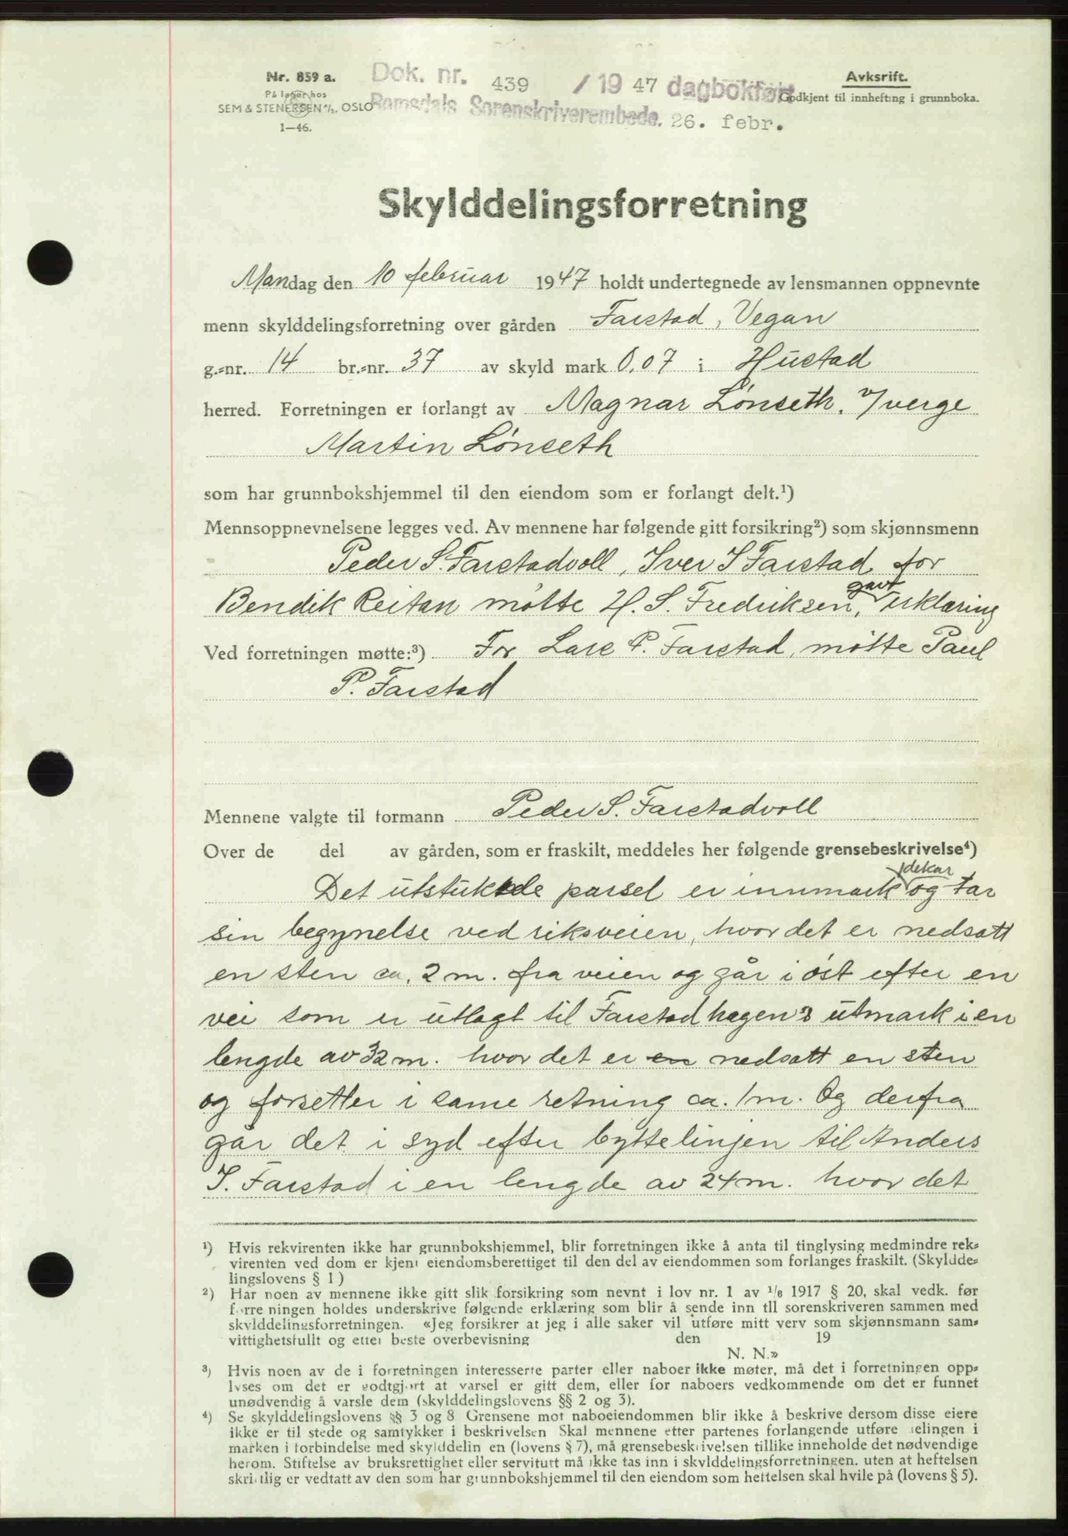 Nr. 859 a.
På lager hos
SEM & STENERSEN A/S, OSLO
1—46.
Dok. nr. 439 / 1947 dagbokført
Romsdals Sorenskriverembede. 26. febr.
Avksrift.
Godkjent til innhefting i grunnboka.
Skylddelingsforretning
Mandag den 10 februar 1947 holdt undertegnede av lensmannen oppnevnte
menn skylddelingsforretning over gården Farstad, Vegan
g.-nr. 14 br.-nr. 37 av skyld mark 0.07 i Hustad
herred. Forretningen er forlangt av Magnar Lønseth, v/verge
Martin Lønseth
som har grunnbokshjemmel til den eiendom som er forlangt delt.¹)
Mennsoppnevnelsene legges ved. Av mennene har følgende gitt forsikring²) som skjønnsmenn
Peder S. Farstadvoll, Iver I Farstad, for
Bendik Reitan møtte H. S. Fredriksen, gavt erklæring
Ved forretningen møtte:³) For Lars P. Farstad, møtte Paul
P. Farstad
Mennene valgte til formann Peder S. Farstadvoll
Over de del av gården, som er fraskilt, meddeles her følgende grensebeskrivelse⁴)
Det utstukkede parsel er innmark 1 dekar og tar
sin begynelse ved riksveien, hvor det er nedsatt
en sten ca. 2 m. fra veien og går i øst efter en
vei som er utlagt til Farstadhagen's utmark i en
lengde av 32 m. hvor det er en nedsatt en sten
og forsetter i same retning ca. 1 m. Og derfra
går det i syd efter byttelinjen til Anders
I. Farstad i en lengde av 24 m. hvor det
¹) Hvis rekvirenten ikke har grunnbokshjemmel, blir forretningen ikke å anta til tinglysing medmindre rek-
virenten ved dom er kjent eiendomsberettiget til den del av eiendommen som forlanges fraskilt. (Skyldde-
lingslovens § 1)
²) Har noen av mennene ikke gitt slik forsikring som nevnt i lov nr. 1 av 1/6 1917 § 20, skal vedk. før
forretningen holdes underskrive følgende erklæring som blir å sende inn til sorenskriveren sammen med
skylddelingsforretningen. «Jeg forsikrer at jeg i alle saker vil utføre mitt verv som skjønnsmann sam-
vittighetsfullt og etter beste overbevisning den 19
N. N.»
³) Hvis noen av de i forretningen interesserte parter eller naboer ikke møter, må det i forretningen opp-
lyses om det er godtgjort at varsel er gitt dem, eller for naboers vedkommende om det er funnet
unødvendig å varsle dem (skylddelingslovens §§ 2 og 3).
⁴) Se skylddelingslovens §§ 3 og 8 Grensene mot naboeiendommen blir ikke å beskrive dersom disse eiere
ikke er til stede og samtykker i beskrivelsen Skal mennene etter partenes forlangende utføre delingen i
marken i forbindelse med skylddelingen (lovens § 7), må grensebeskrivelsen tillike inneholde det nødvendige
herom. Stiftelse av bruksrettighet eller servitutt må ikke tas inn i skylddelingsforretningen, uten at heftelsen
skriftlig er vedtatt av den som har grunnbokshjemmel til den eiendom som heftelsen skal hvile på (lovens § 5).